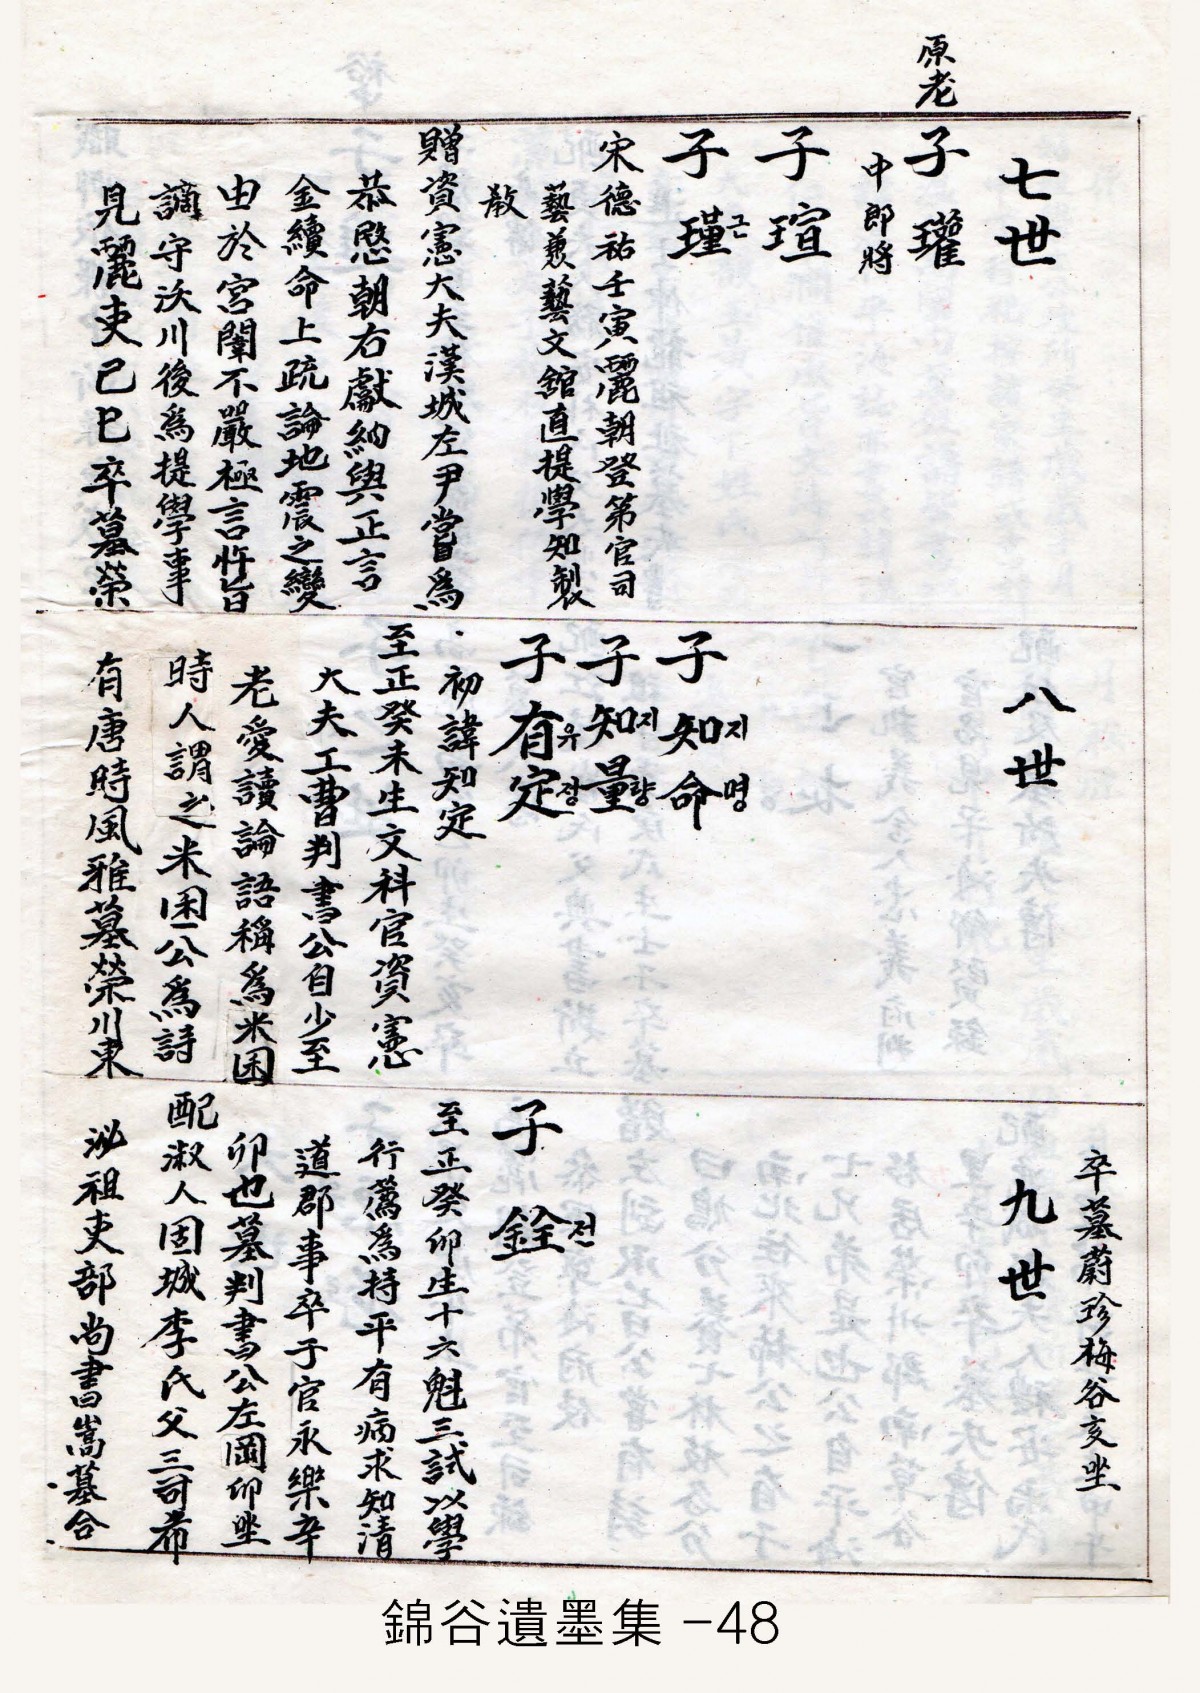 原老
七世
子瓘
中郎將
子瑄
子瑾근
宋德祐壬寅麗朝登第官司
藝兼藝文館直提學知製
教
贈資憲大夫漢城左尹嘗爲
恭愍朝右獻納與正言
金續命上疏論地震之變
由於宮闈不嚴極言忤旨
謫守沃川後爲提學事
見麗吏己巳卒墓榮
八世
子知지命명
子知지量량
子有유定정
初諱知定
至正癸未生文科官資憲
大夫工曹判書公自少至
老愛讀論語稱爲米囷
時人謂之米囷公爲詩
有唐時風雅墓榮川東
卒墓蔚珍梅谷亥坐
九世
子銓전
至正癸卯生十六魁三試以學
行薦爲持平有病求知清
道郡事卒于官永樂辛
卯也墓判書公左岡卯坐
配淑人固城李氏父三司希
泌祖吏部尚書嵩墓合
錦谷遺墨集 -48